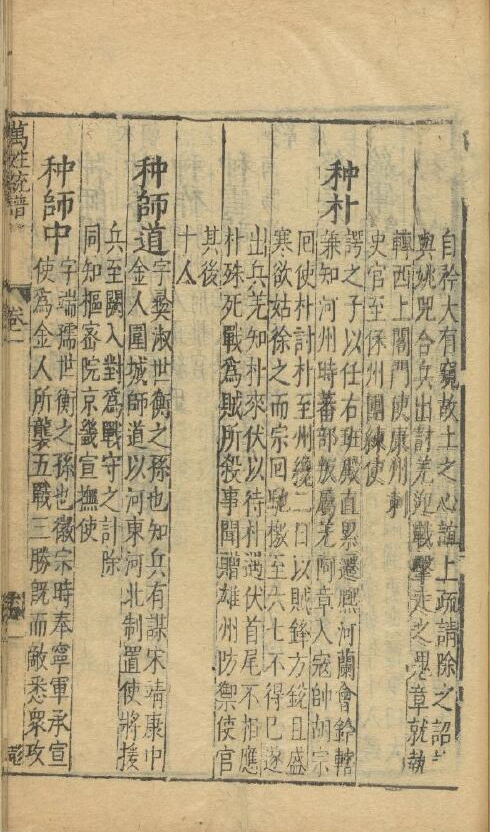 自矜大有窺故土之心誼上疏請除之詔
與姚兕合兵出討羌迎戰擊走之鬼章就執
轉西上閤門使康州刺
史官至保州團練使
种朴
諤之子以任右班殿直累遷熙河蘭會鈐轄
兼知河州時蕃部叛屬羌阿章入寇帥胡宗
回使朴討朴至州纔二日以賊鋒方銳且盛
寒欲姑徐之而宗回馳檄至六七不得已遂
出兵羌知朴來伏以待朴遇伏首尾不相應
朴殊死戰為賊所殺事聞贈雄州防禦使官
其後
十人
种師道
字彝淑世衡之孫也知兵有謀宋靖康中
金人圍城師道以河東河北制置使將援
兵至闕入對為戰守之計除
同知樞密院京畿宣撫使
种師中
字端孺世衡之孫也徽宗時奉寧軍承宣
使為金人所襲五戰三勝既而敵悉衆攻
萬姓統譜
卷二